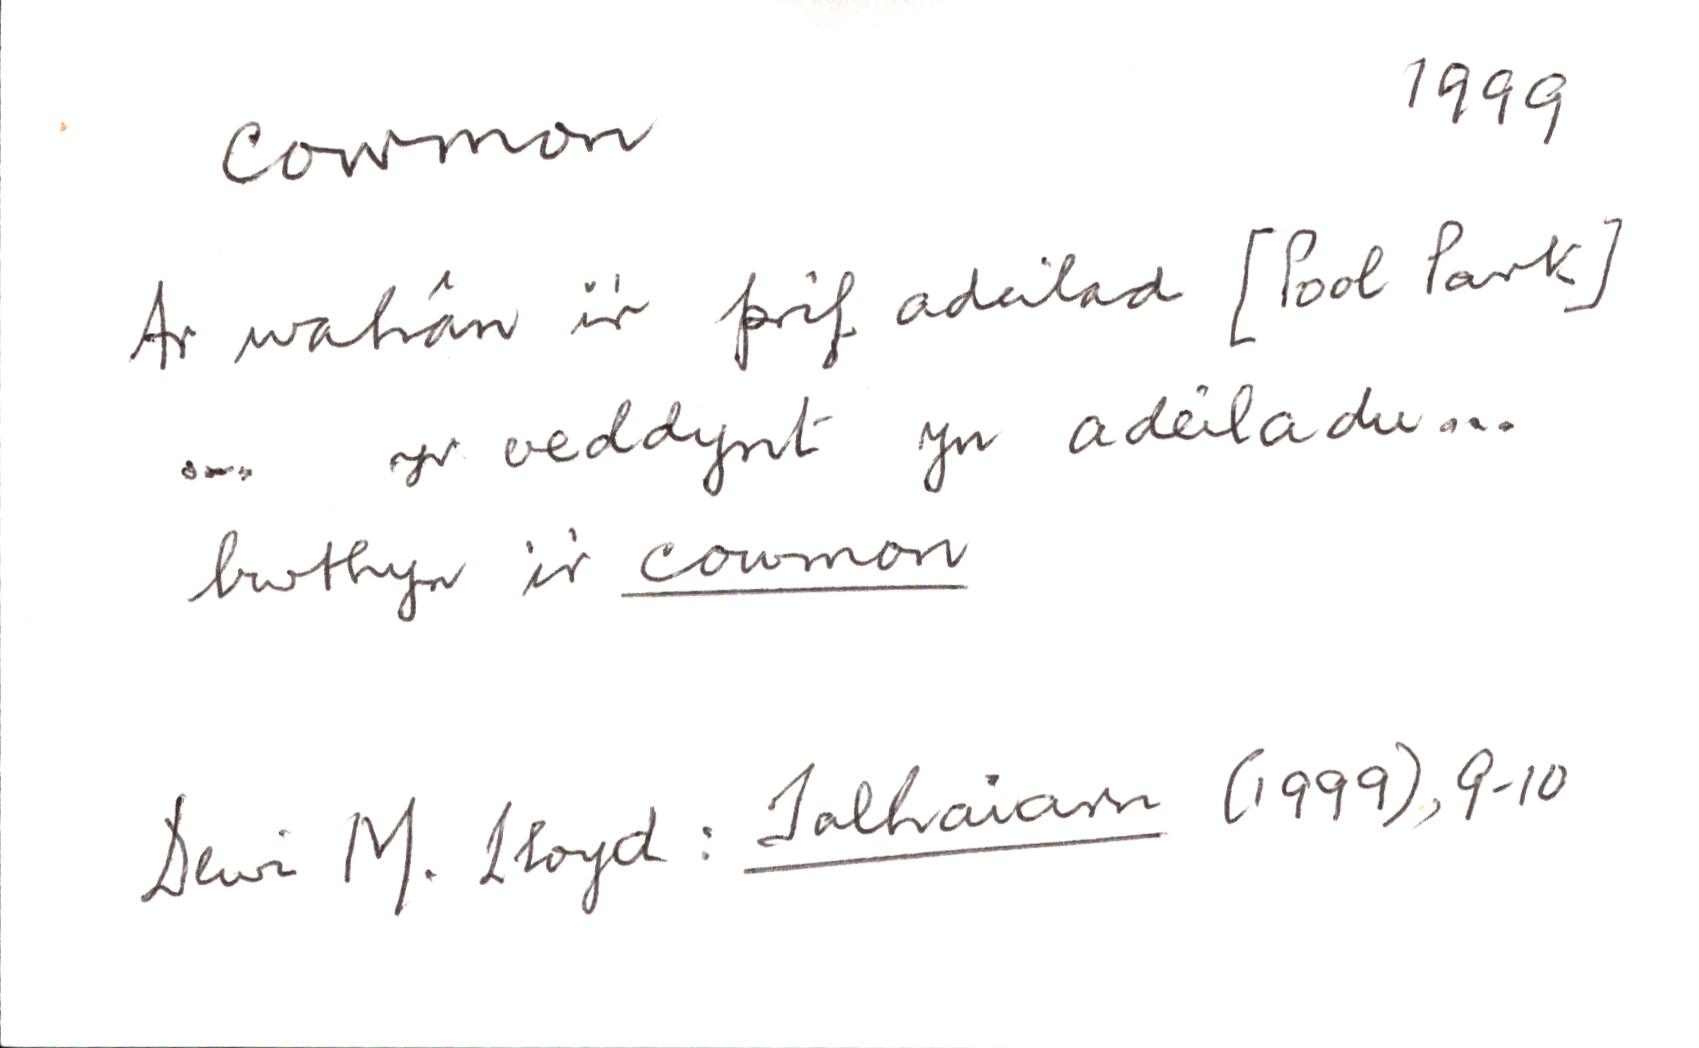 cowmon 1999
Ar wahân i'r prif adeilad [Pool Park]
.... yr oeddynt yn adeiladu...
bwthyn i'r cowmon
Dewi M. Lloyd: Talhaiarn (1999), 9-10